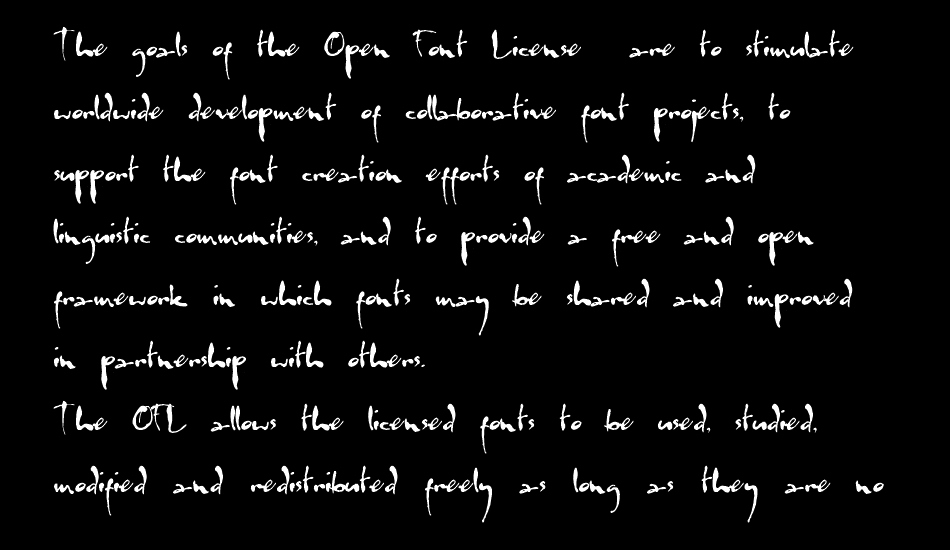 The goals of the Open Font License are to stimulate
worldwide development of collaborative font projects, to
support the font creation efforts of academic and
linguistic communities, and to provide a free and open
framework in which fonts may be shared and improved
in partnership with others.
The OFL allows the licensed fonts to be used, studied,
modified and redistributed freely as long as they are no